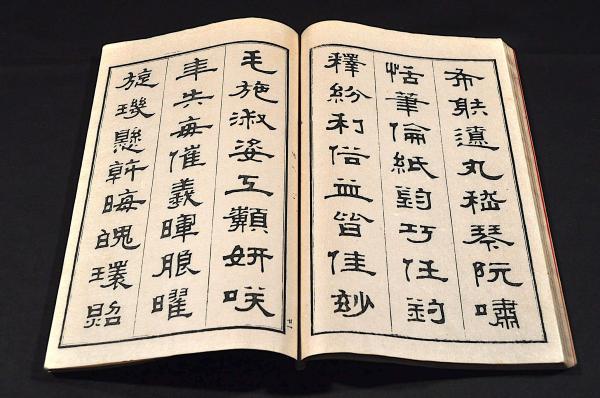 布䠶遼丸嵇琴阮嘯
恬筆倫紙鈞巧任釣
釋紛利俗並皆佳妙
毛施淑姿工顰妍咲
年矢每催羲暉朗曜
旋璣懸斡晦魄環照